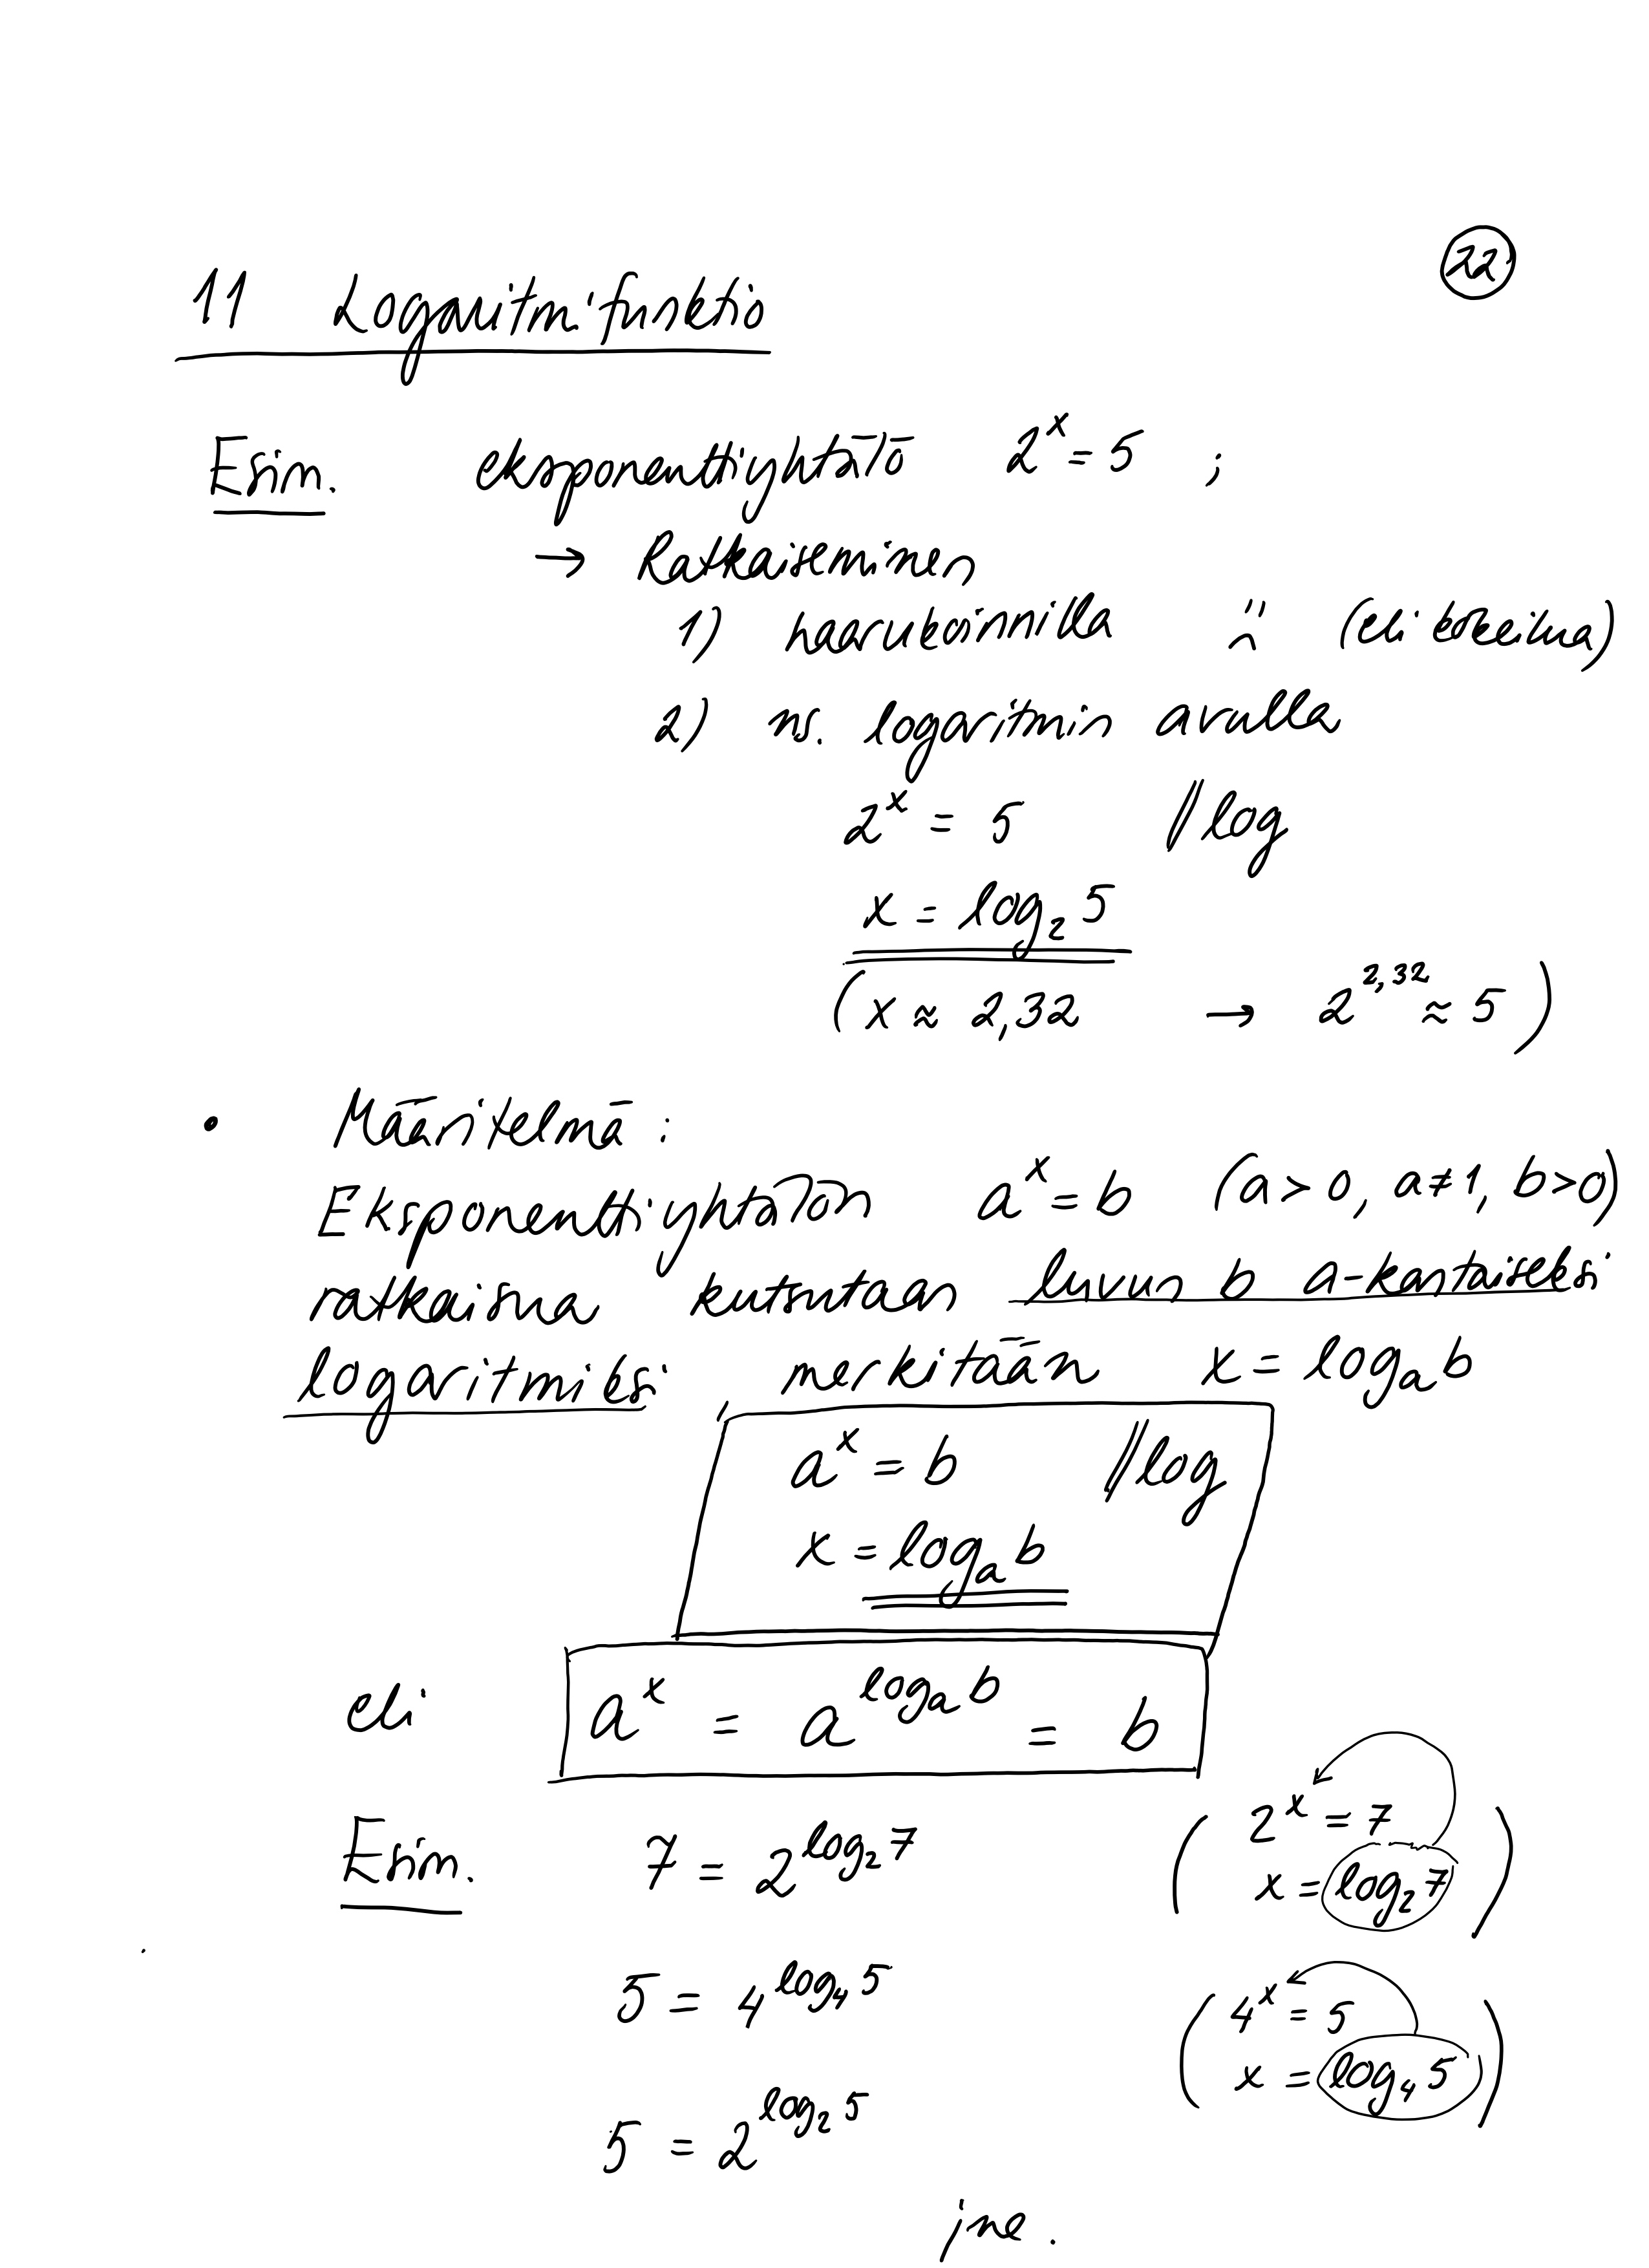 22
11 Logaritmifunktio
Esim. eksponenttiyhtälö 2^x = 5 ;
→ Ratkaiseminen
1) haarukoinnilla (eli kokeilua)
2) ns. logaritmin avulla
2^x = 5 //log
x = log₂ 5
(x ≈ 2,32 → 2^2,32 ≈ 5)
• Määritelmä :
Eksponenttiyhtälön a^x = b (a > 0, a ≠ 1, b > 0)
ratkaisua kutsutaan luvun b a-kantaiseksi
logaritmiksi merkitään x = logₐ b
a^x = b //log
x = logₐ b
eli a^x = a^(logₐ b) = b
Esim. 7 = 2^(log₂ 7) (2^x = 7
x = log₂ 7)
5 = 4^(log₄ 5) (4^x = 5
x = log₄ 5)
5 = 2^(log₂ 5)
jne.